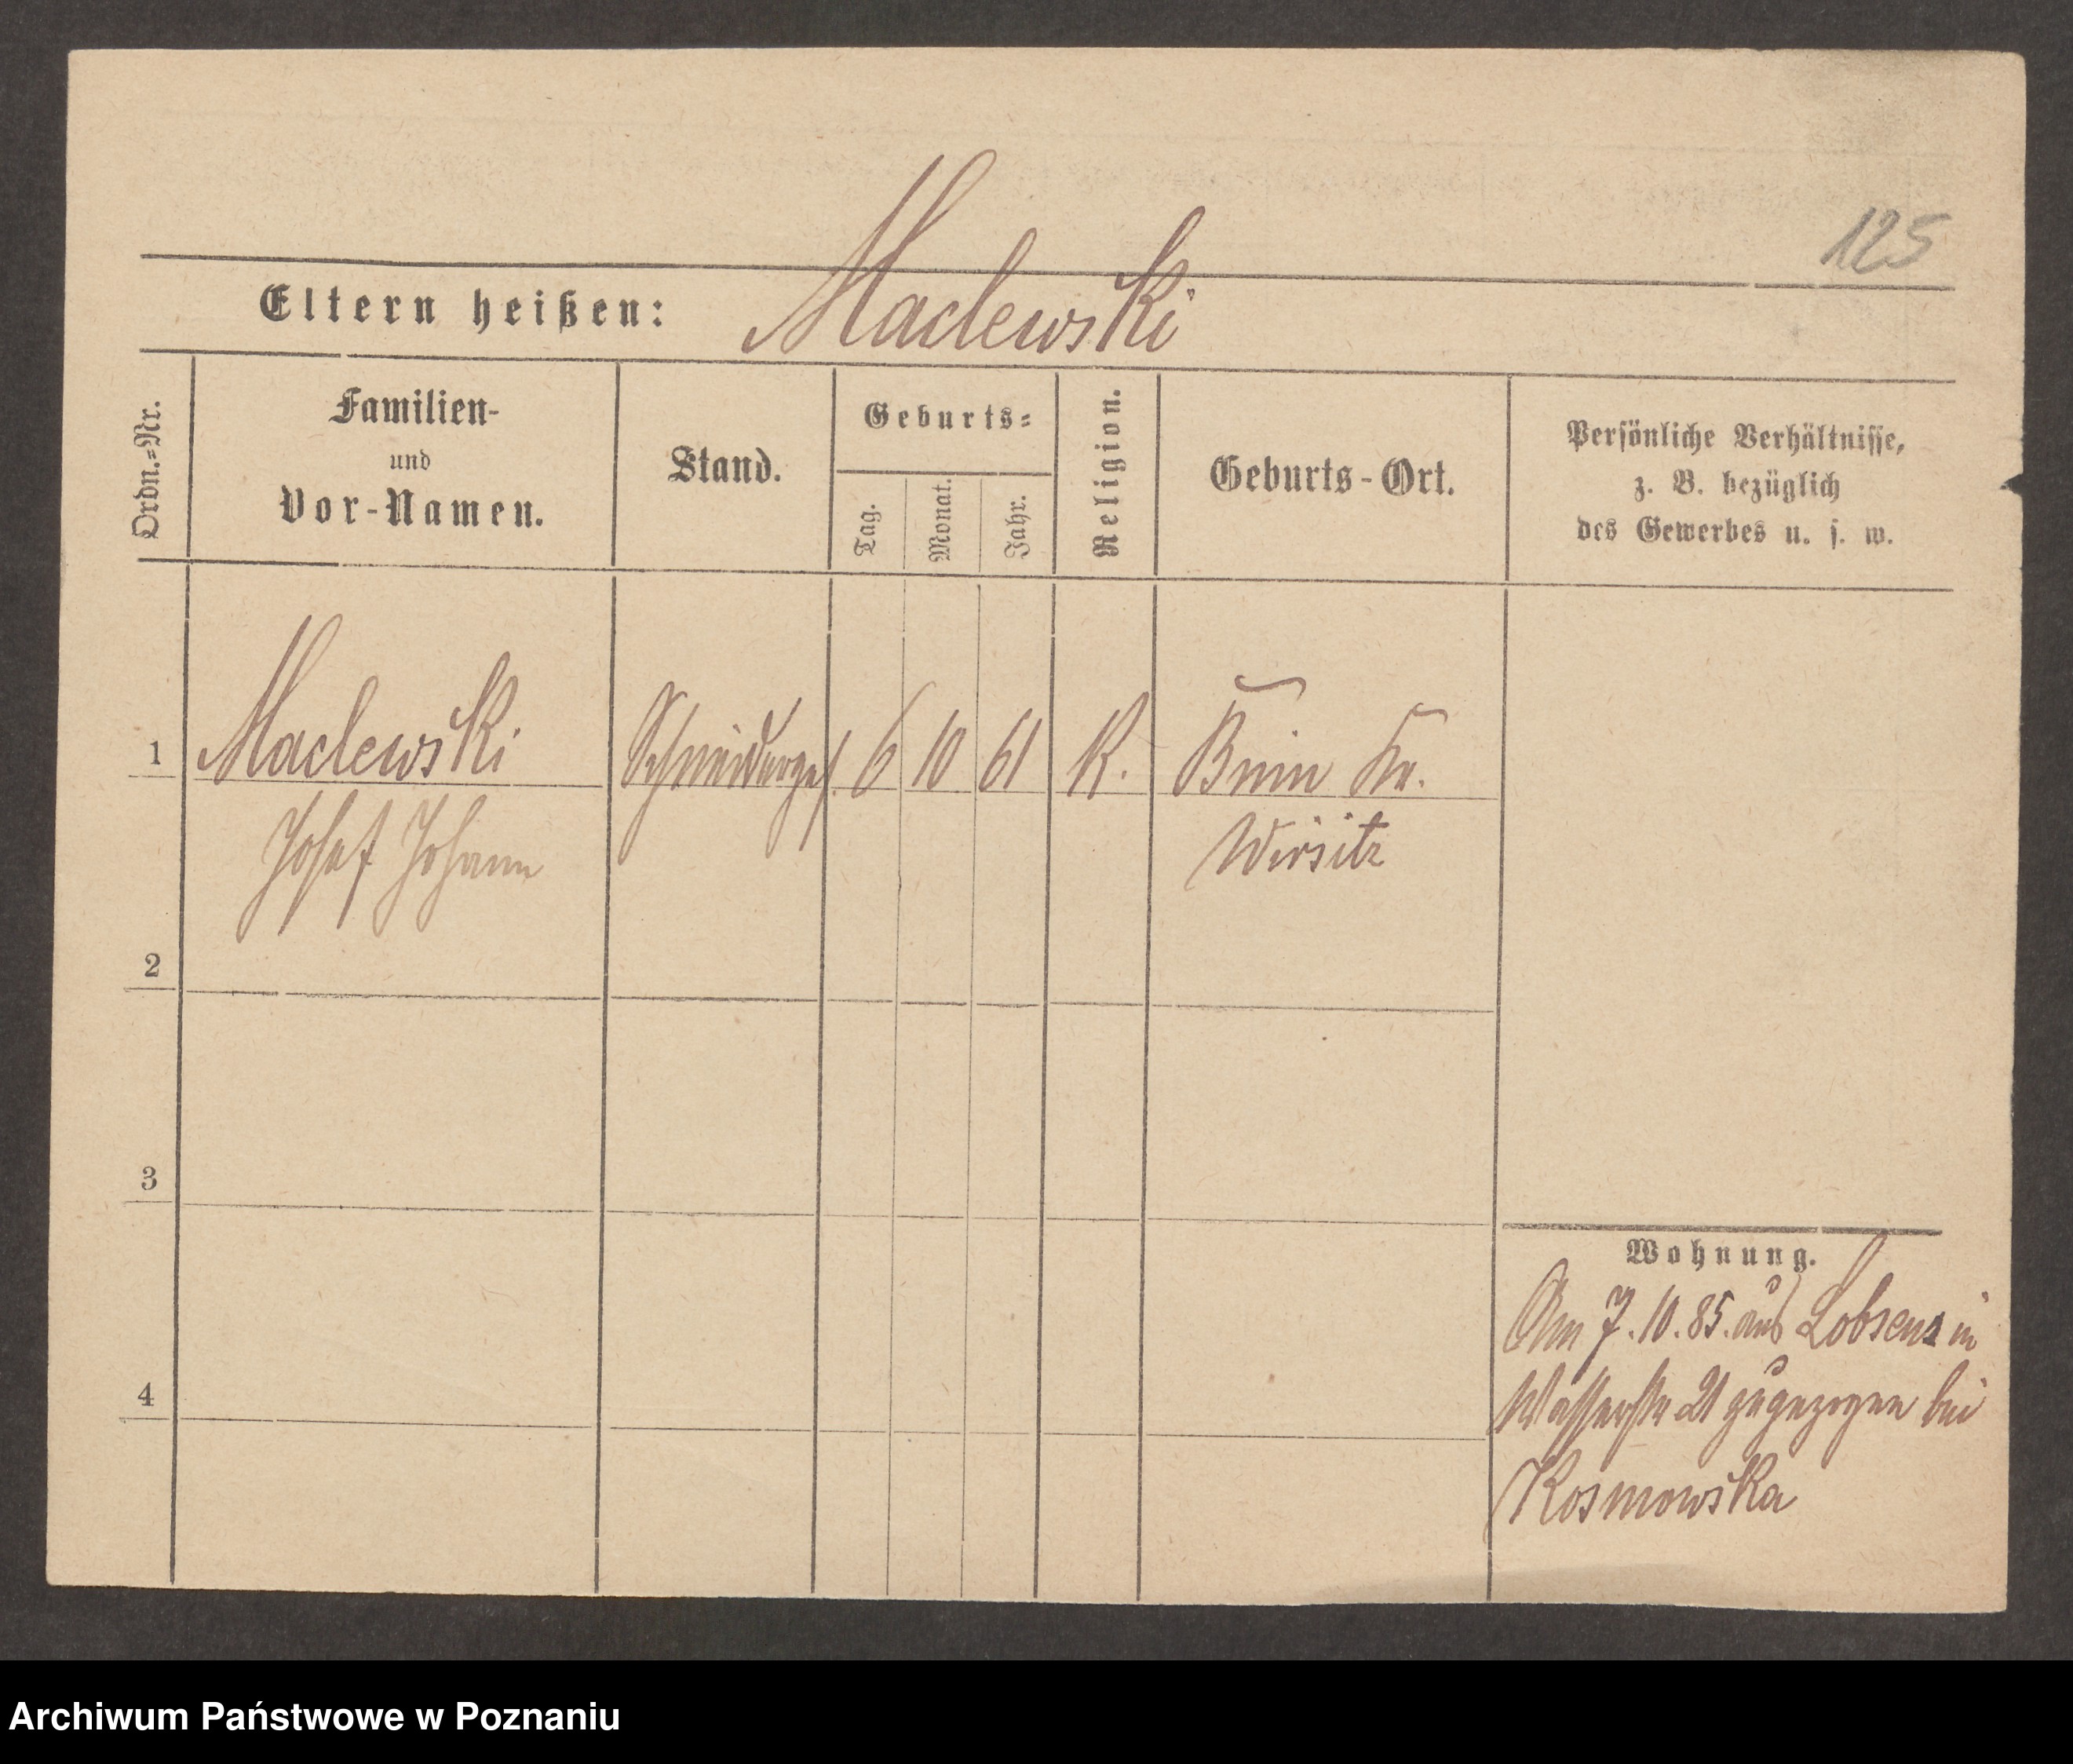 125
Eltern heißen: Maclewski
Ordn.=Nr.
Familien-
und
Vor-Namen.
Stand.
Geburts=
Tag.
Monat.
Jahr.
Religion.
Geburts-Ort.
Persönliche Verhältnisse,
z. B. bezüglich
des Gewerbes u. s. w.
1 Maclewski Schneiderges. 6 10 61 K. Kr.
Josef Johann Wirsitz
2
3
4
Wohnung.
Am 7.10.85. aus Lobsens in
Wasserstr 21 zugezogen bei
Kosmowska
Archiwum Państwowe w Poznaniu